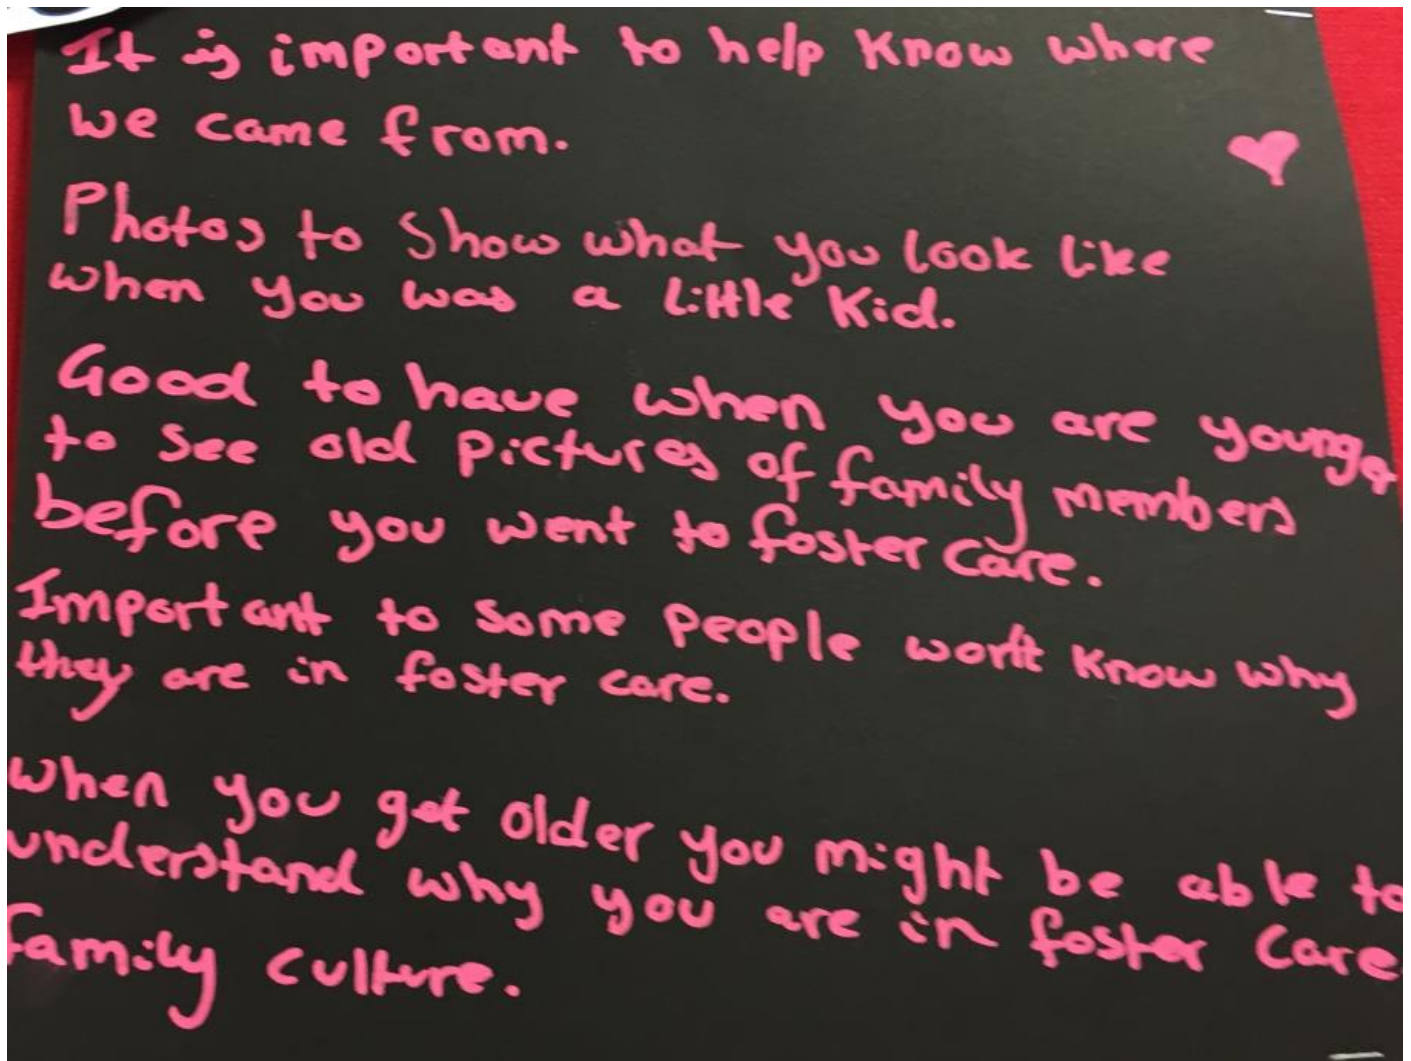 It is important to help know where
we came from.
Photos to show what you look like
when you was a little kid.
Good to have when you are younger
to see old pictures of family members
before you went to foster care.
Important to some people won't know why
they are in foster care.
When you get older you might be able to
understand why you are in foster care.
family culture.